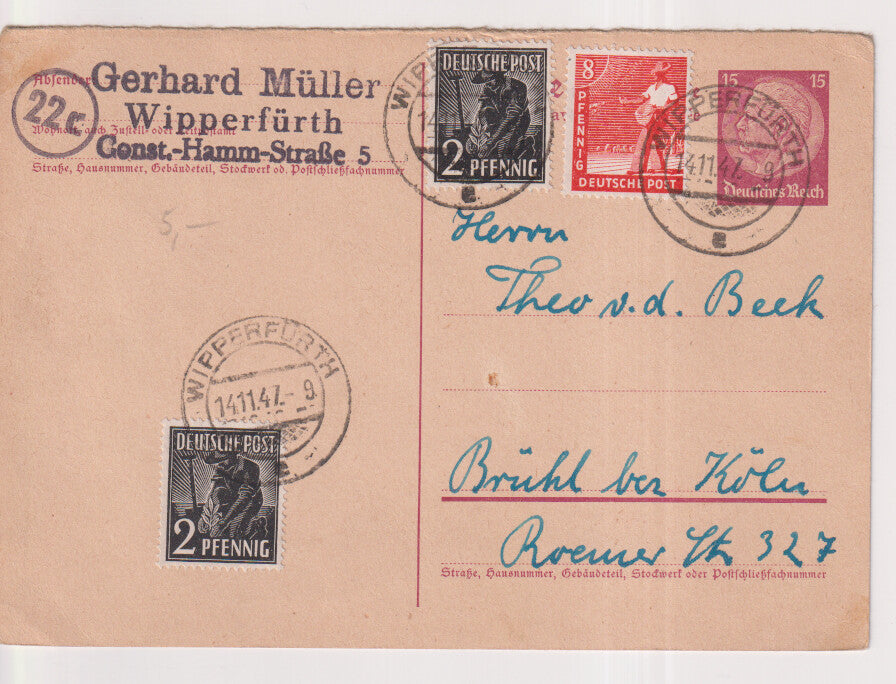 Absender:
Gerhard Müller
22c
Wipperfürth
Wohnort, auch Zustell- oder Leitpostamt
Const.-Hamm-Straße 5
Straße, Hausnummer, Gebäudeteil, Stockwerk od. Postschließfachnummer
5,—
DEUTSCHE POST
2 PFENNIG
WIPPERFÜRTH
14.11.47
a
8
PFENNIG
DEUTSCHE POST
15 15
Deutsches Reich
WIPPERFÜRTH
14.11.47.- 9
a
Herrn
Theo v. d. Beek
Brühl bei Köln
Roemer Str 327
Straße, Hausnummer, Gebäudeteil, Stockwerk oder Postschließfachnummer
WIPPERFÜRTH
14.11.47.- 9
a
DEUTSCHE POST
2 PFENNIG